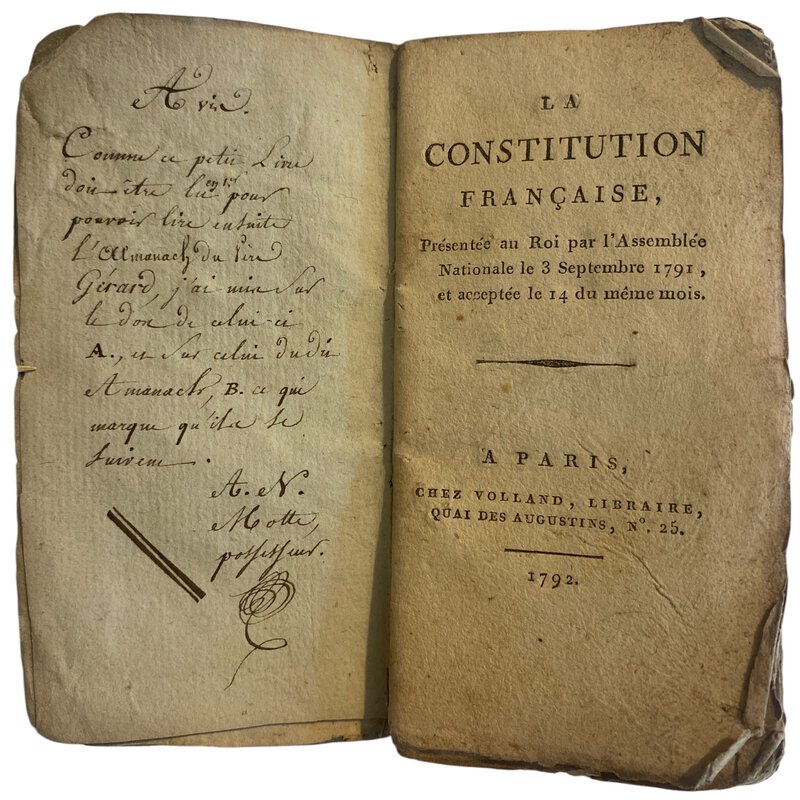 Avis.
Comme ce petit Livre
doit être lu en 1er pour
pouvoir lire ensuite
L'Almanach du Pere
Gérard, j'ai mis sur
le dos de celui-ci
A., et sur celui du dit
Almanach, B. ce qui
marque qu'ils se
suivent.
A. N.
Motte,
possesseur.
LA
CONSTITUTION
FRANÇAISE,
Présentée au Roi par l'Assemblée
Nationale le 3 Septembre 1791,
et acceptée le 14 du même mois.
A PARIS,
CHEZ VOLLAND, LIBRAIRE,
QUAI DES AUGUSTINS, N°. 25.
1792.